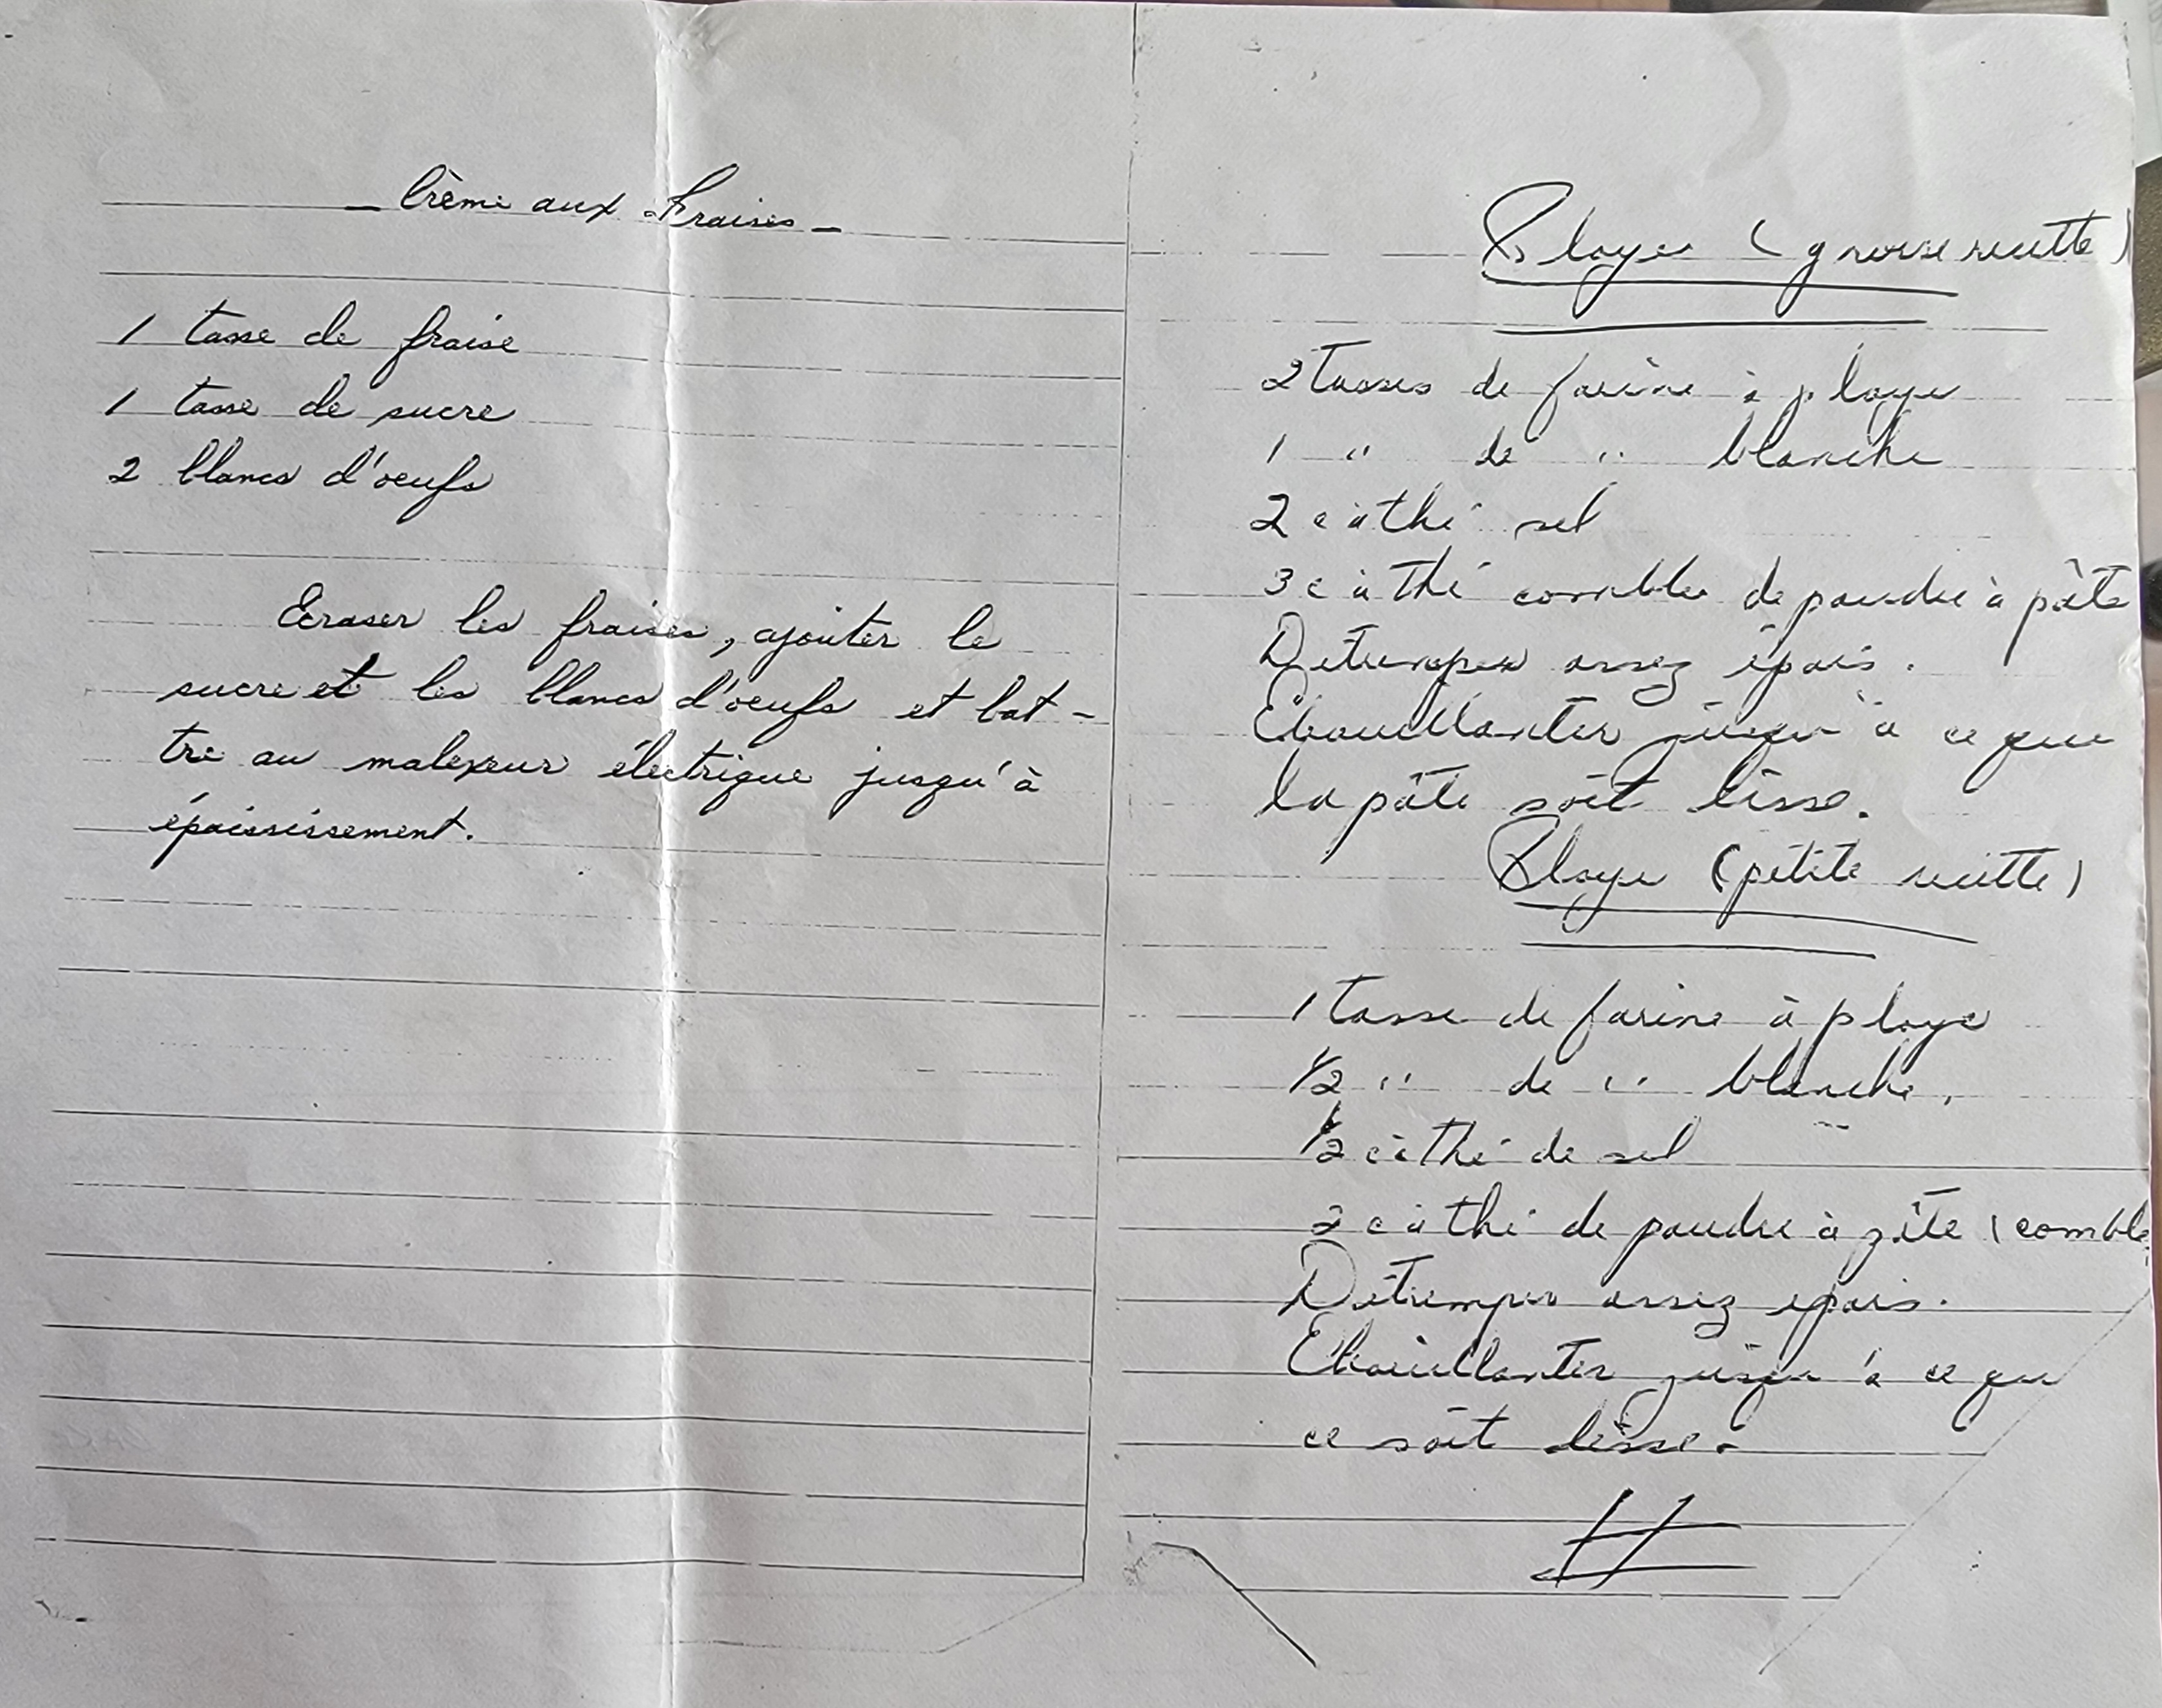 - Crème aux Fraises -
1 tasse de fraise
1 tasse de sucre
2 blancs d'oeufs
Ecraser les fraises, ajouter le
sucre et les blancs d'oeufs et bat-
tre au malexeur électrique jusqu'à
épaississement.
Ploye (grosse recette)
2 Tasses de farine à ploye
1 " de " blanche
2 c à thé sel
3 c à thé comble de poudre à pâte
Détremper assez épais.
Ebouillanter jusqu'à ce que
la pâte soit lisse.
Ploye (petite recette)
1 tasse de farine à ploye
1/2 " de " blanche.
1/2 c à thé de sel
2 c à thé de poudre à pâte (comble
Détremper assez épais.
Ebouillanter jusqu'à ce que
ce soit lisse.